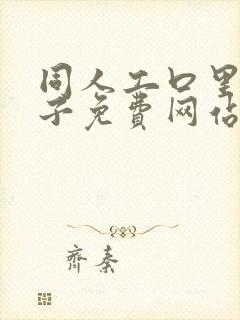 同人工口里
子免费网站
齐秦